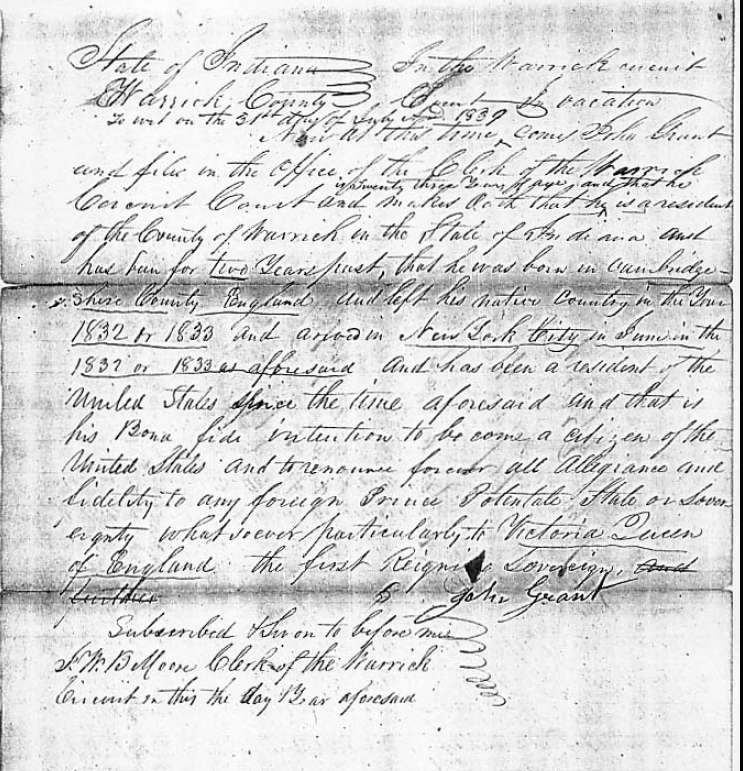 State of Indiana In the Warrick circuit
Warrick County Court In vacation
To wit on the 31st day of July AD. 1839
Now at this time, comes John Grant
and files in the office of the Clerk of the Warrick
is twenty three Years of age, and that he
Circuit Court and makes oath that he is a resident
of the County of Warrick in the State of Indiana and
has been for two Years past, that he was born in Cambridge-
shire County England and left his native Country in the Year
1832 or 1833 and arived in New York City in June in the
1832 or 1833 as aforesaid and has been a resident of the
United States since the time aforesaid and that is
his Bona fide intention to be come a citizen of the
United States and to renounce forever all Allegiance and
fidelity to any foreign Prince Potentate State or Sover-
eignty whatsoever particularly to Victoria Queen
of England the first Reigning Sovereign, and
further John Grant
Subscribed & Sworn to before me
Clerk of the Warrick
Circuit on this the day Year aforesaid